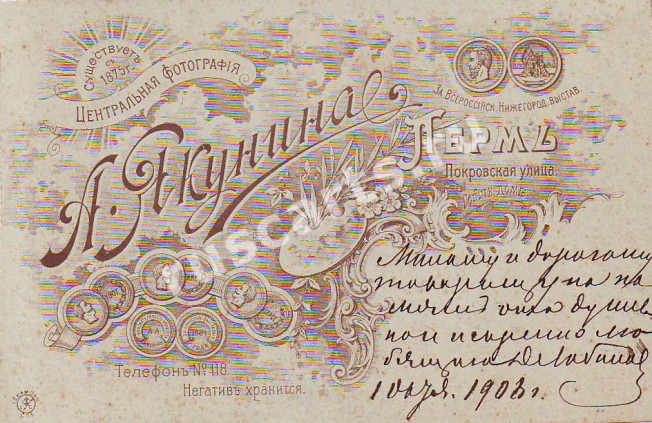 Существуетъ
съ 1875 г.
Центральная Фотографія
А. Якунина
За Всероссійск. Нижегород. выстав.
Пермь
Покровская улица.
Телефонъ № 118.
Негативъ хранится.
Милому и дорогому
товарищу на па
мять отъ душев
но и искренно лю
бящаго
1903 г.
ruscarts.ru